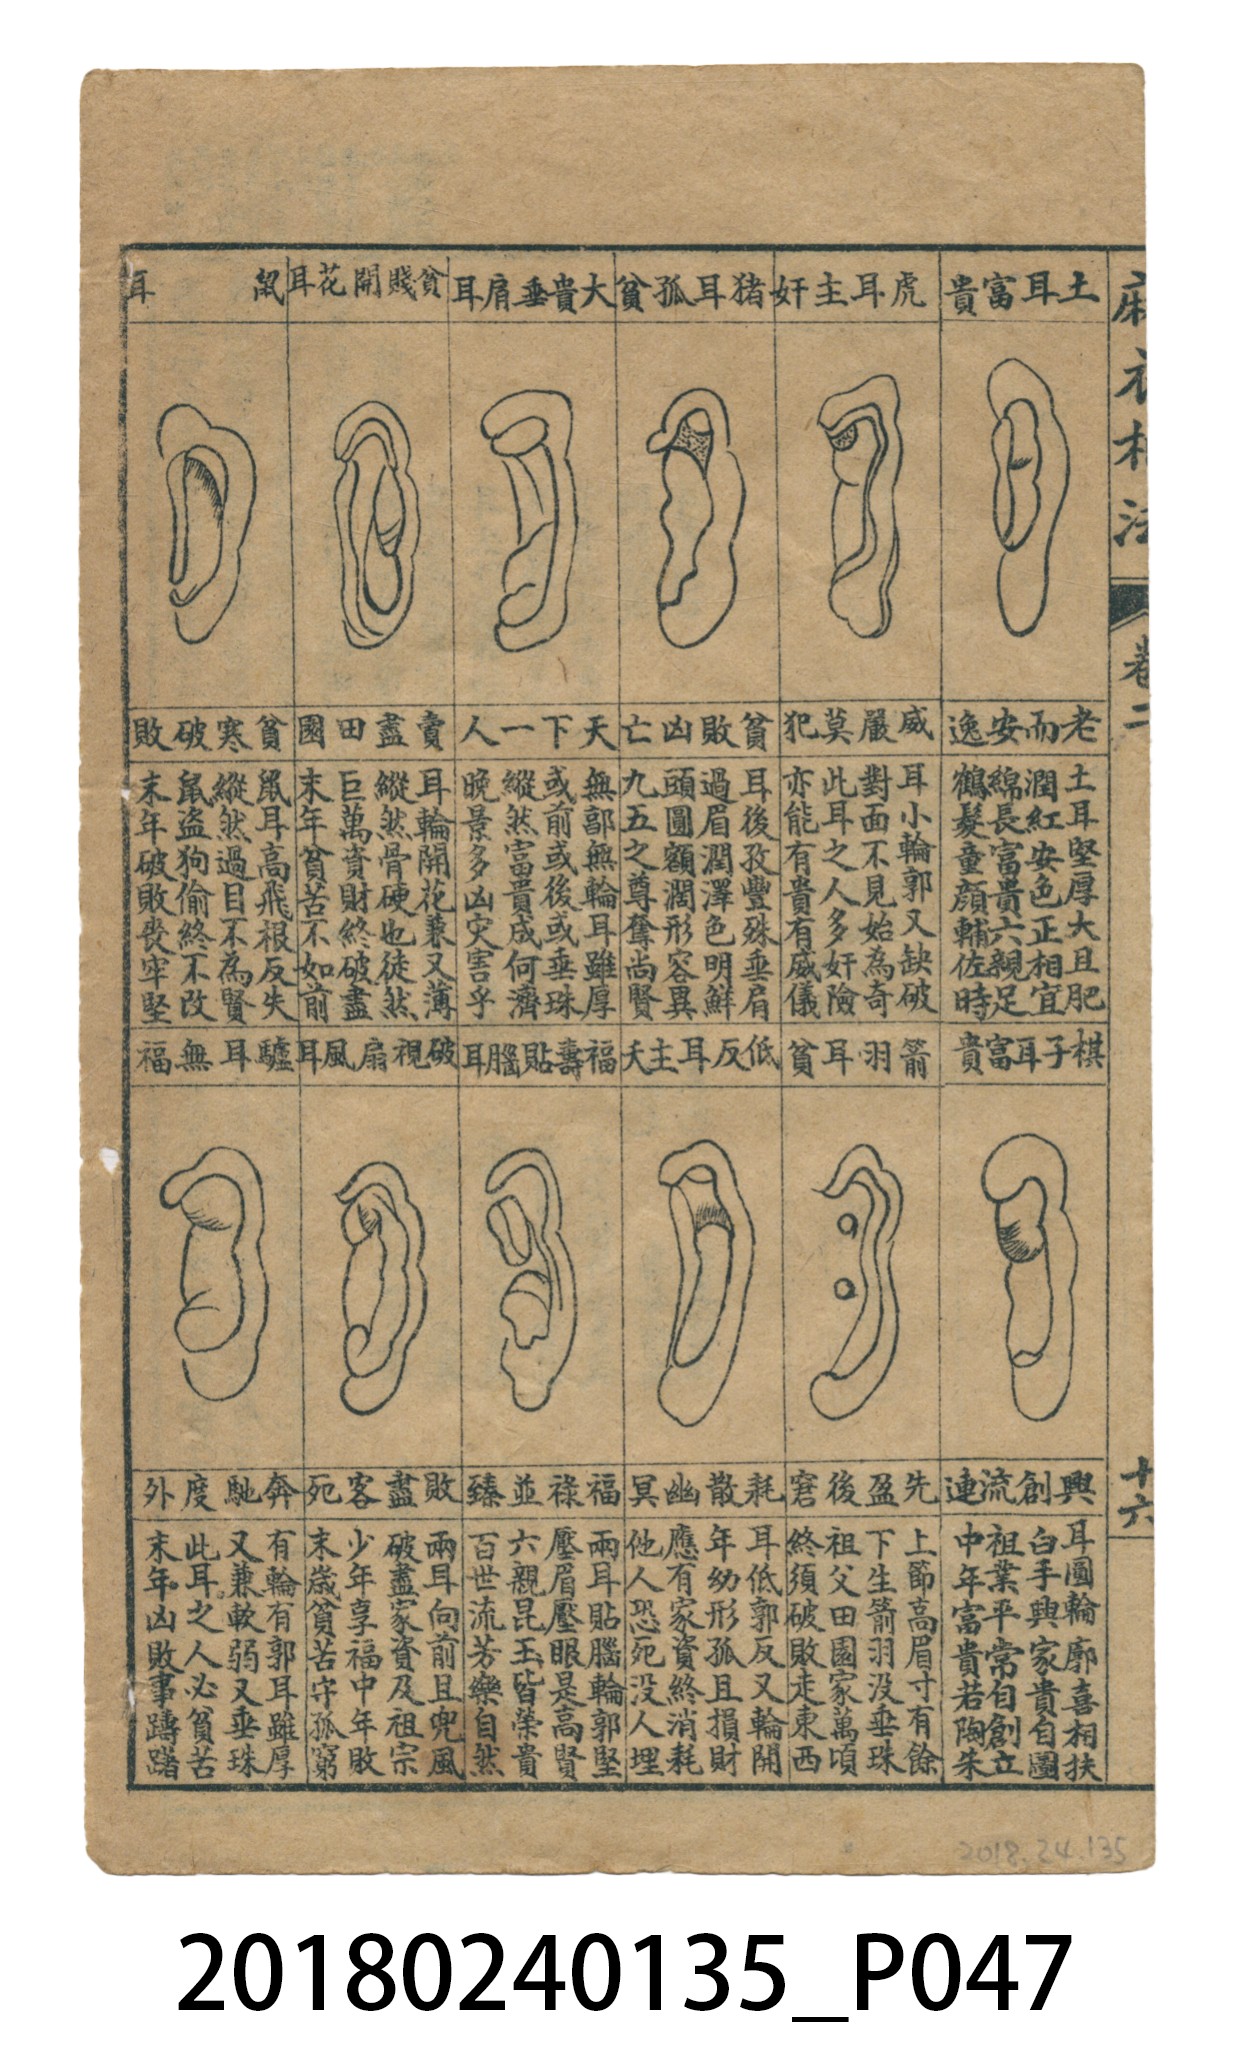 麻衣相法
卷二
十六
土耳富貴
老而安逸
土耳堅厚大且肥
潤紅安色正相宜
綿長富貴六親足
鶴髮童顏輔佐時
虎耳主奸
威嚴莫犯
耳小輪郭又缺破
對面不見始為奇
此耳之人多奸險
亦能有貴有威儀
猪耳孤貧
貧敗凶亡
大貴垂肩耳
天下一人
耳後孜豐殊垂肩
過眉潤澤色明鮮
頭圓額濶形容異
九五之尊奪尚賢
無郭無輪耳雖厚
或前或後或垂珠
縱然富貴成何濟
晚景多凶灾害乎
貧賤開花耳
賣盡田園
耳輪開花兼又薄
縱然骨硬也徒然
巨萬資財終破盡
末年貧苦不如前
鼠耳
貧寒破敗
鼠耳高飛根反失
縱然過目不為賢
鼠盗狗偷終不改
末年破敗喪牢堅
棋子耳富貴
興創流連
耳圓輪廓喜相扶
白手興家貴自圖
祖業平常自創立
中年富貴若陶朱
箭羽耳貧
先盈後窘
上節高眉寸有餘
下生箭羽没垂珠
祖父田園家萬頃
終須破敗走東西
低反耳主夭
耗散幽冥
耳低郭反又輪開
年幼形孤且損財
應有家資終消耗
他人恐死没人埋
福壽貼腦耳
福祿並臻
兩耳貼腦輪郭堅
壓眉壓眼是高賢
六親昆玉皆榮貴
百世流芳樂自然
破視扇風耳
敗盡客死
兩耳向前且兜風
破盡家資及祖宗
少年享福中年敗
末歲貧苦守孤窮
驢耳無福
奔馳度外
有輪有郭耳雖厚
又兼軟弱又垂珠
此耳之人必貧苦
末年凶敗事躊躇
2018.24.135
20180240135_P047